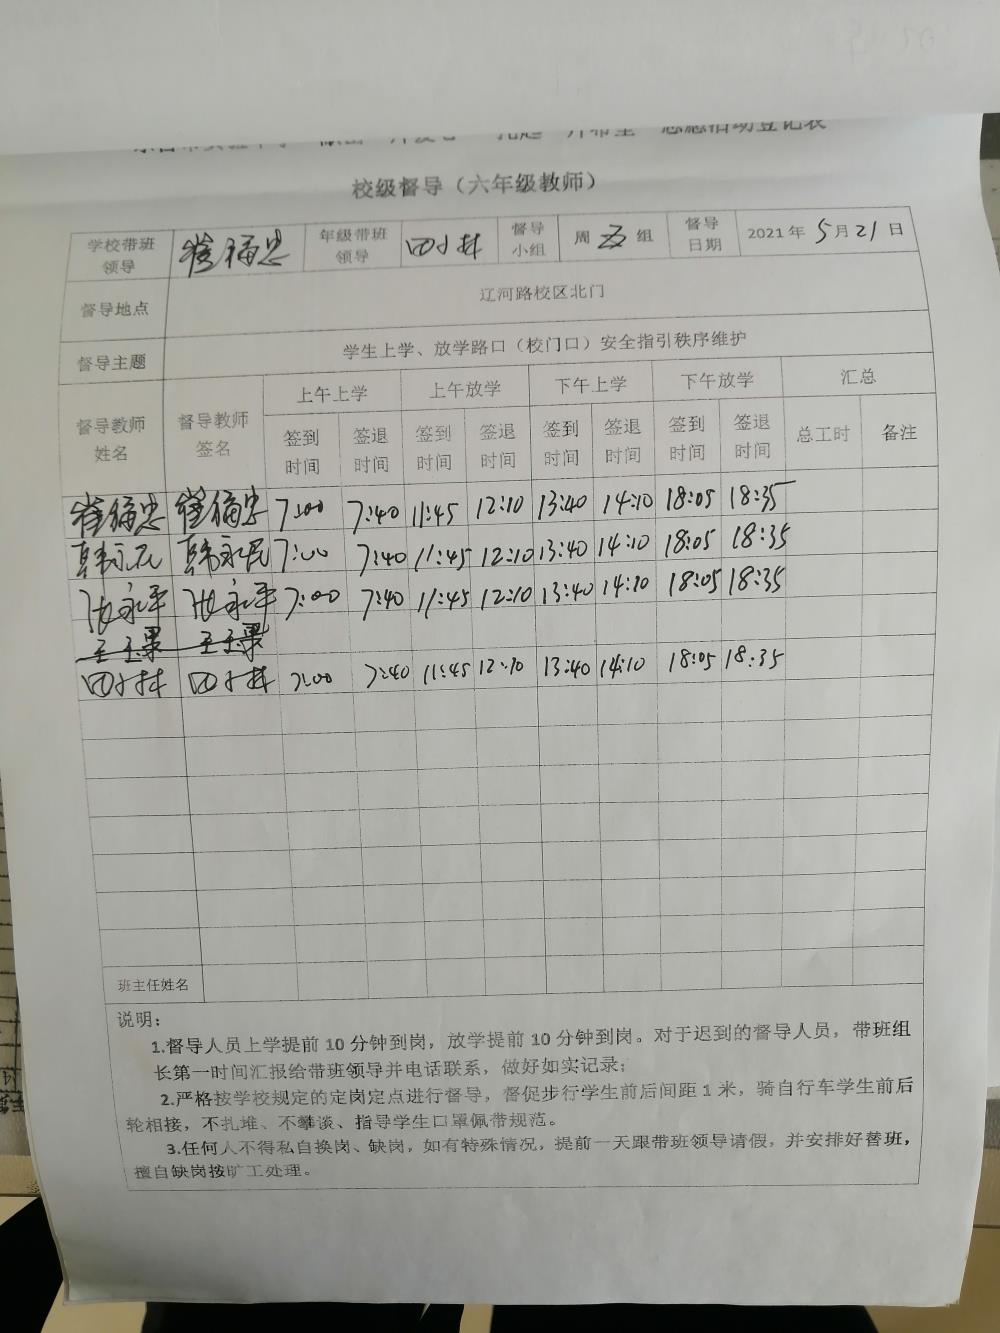 校级督导（六年级教师）
学校带班领导 崔福忠 年级带班领导 督导小组 周五组 督导日期 2021年5月21日
督导地点 辽河路校区北门
督导主题 学生上学、放学路口（校门口）安全指引秩序维护
督导教师姓名 督导教师签名 上午上学 上午放学 下午上学 下午放学 汇总
签到时间 签退时间 签到时间 签退时间 签到时间 签退时间 签到时间 签退时间 总工时 备注
崔福忠 崔福忠 7:00 7:40 11:45 12:10 13:40 14:10 18:05 18:35
韩永 韩永 7:00 7:40 11:45 12:10 13:40 14:10 18:05 18:35
张永平 张永平 7:00 7:40 11:45 12:10 13:40 14:10 18:05 18:35
7:00 7:40 11:45 12:10 13:40 14:10 18:05 18:35
班主任姓名
说明：
1.督导人员上学提前10分钟到岗，放学提前10分钟到岗。对于迟到的督导人员，带班组
长第一时间汇报给带班领导并电话联系，做好如实记录；
2.严格按学校规定的定岗定点进行督导，督促步行学生前后间距1米，骑自行车学生前后
轮相接，不扎堆、不攀谈、指导学生口罩佩带规范。
3.任何人不得私自换岗、缺岗，如有特殊情况，提前一天跟带班领导请假，并安排好替班，
擅自缺岗按旷工处理。